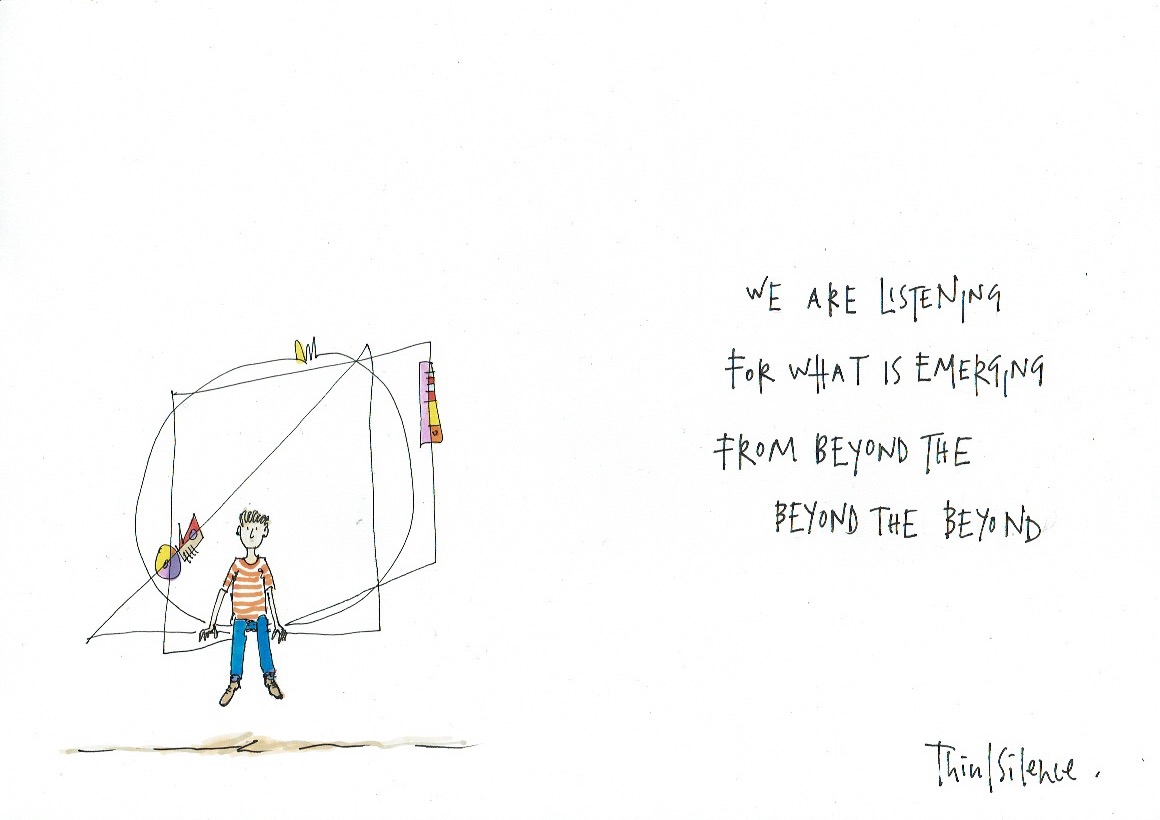 WE ARE LISTENING
FOR WHAT IS EMERGING
FROM BEYOND THE
BEYOND THE BEYOND
Thin|Silence.